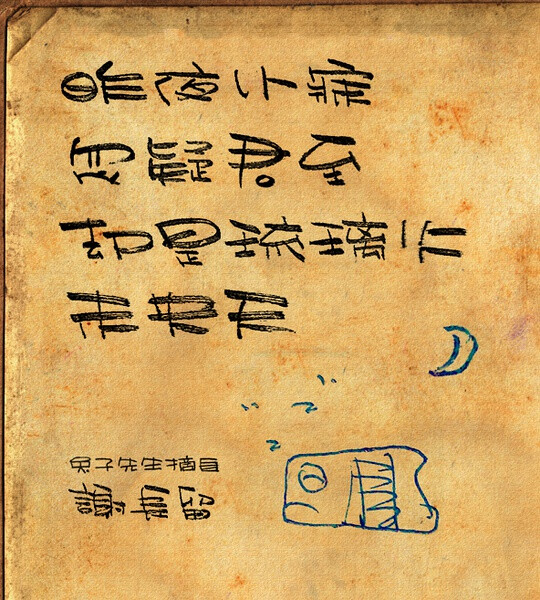 昨夜小寐
忽疑君至
却是琉璃火
未央天
兔子先生摘自
謝長留